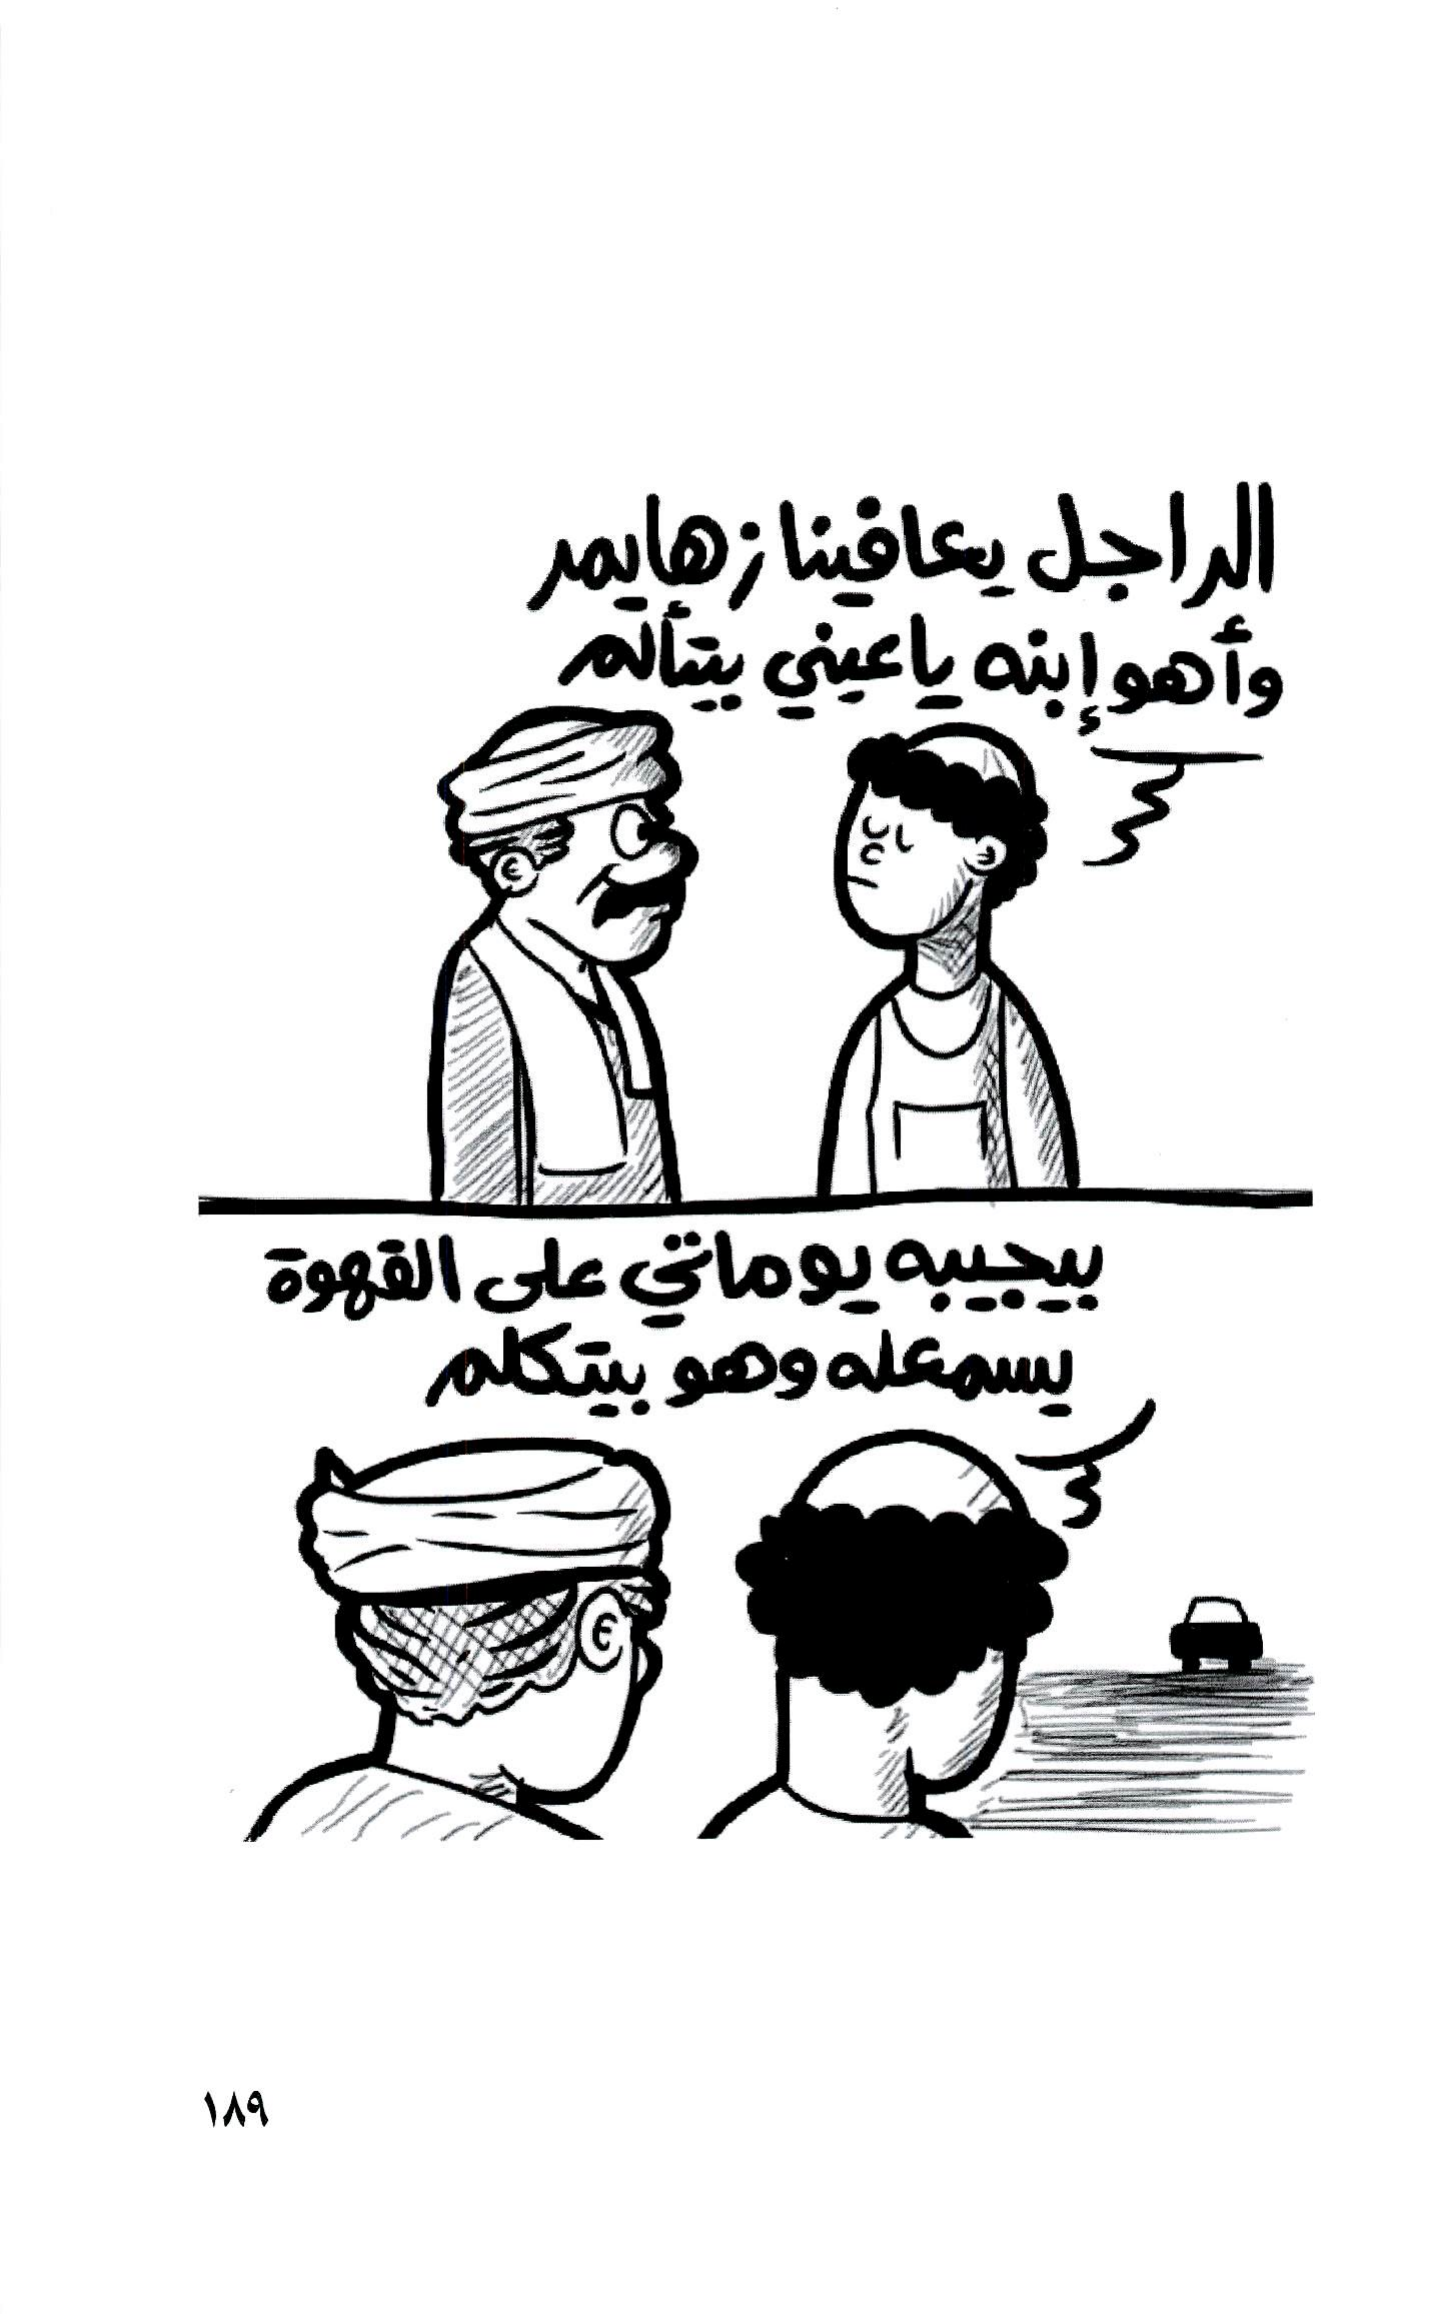 الراجل يعافينا زهايمر
وأهو إبنه ياعيني بيتألم
بيجيبه يوماتي على القهوة
يسمعله وهو بيتكلم
١٨٩